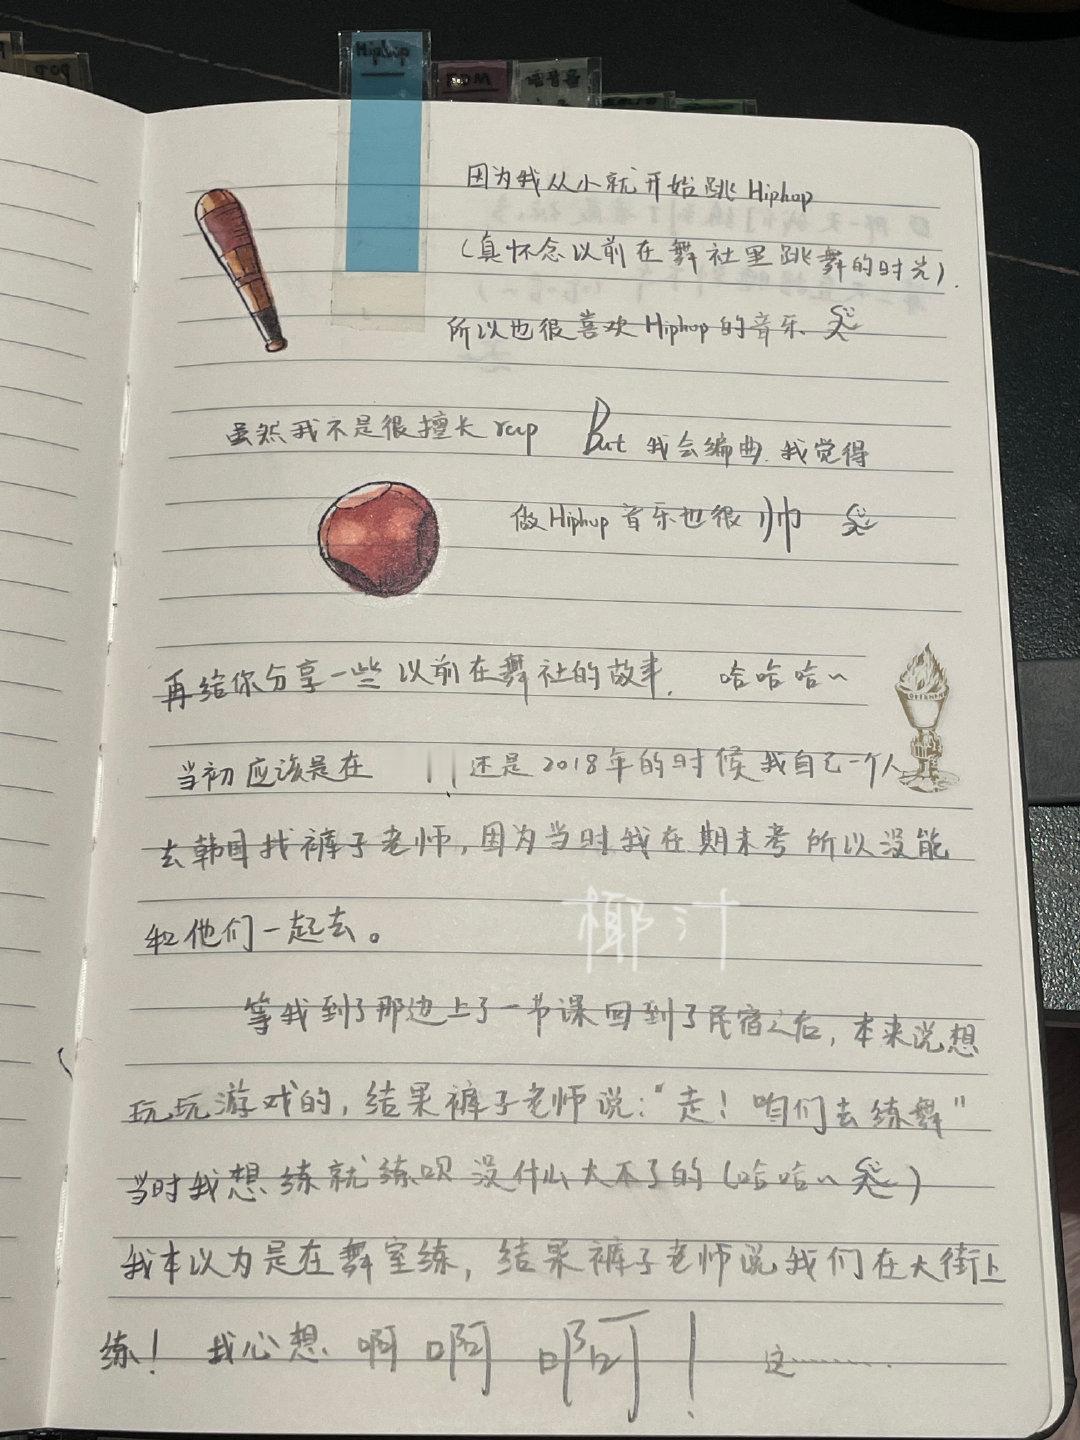 Hiphop
因为我从小就开始跳Hiphop
(真怀念以前在舞社里跳舞的时光).
所以也很喜欢Hiphop的音乐
虽然我不是很擅长rap But 我会编曲.我觉得
做Hiphop音乐也很帅
再给你分享一些以前在舞社的故事. 哈哈哈~
当初应该是在 还是2018年的时候我自己一个人
去韩国找裤子老师,因为当时我在期末考所以没能
和他们一起去。
椰汁
等我到了那边上了一节课回到了民宿之后,本来说想
玩玩游戏的,结果裤子老师说:“走!咱们去练舞”
当时我想练就练呗没什么大不了的(哈哈~)
我本以为是在舞室练,结果裤子老师说我们在大街上
练! 我心想 啊啊啊! 这.........